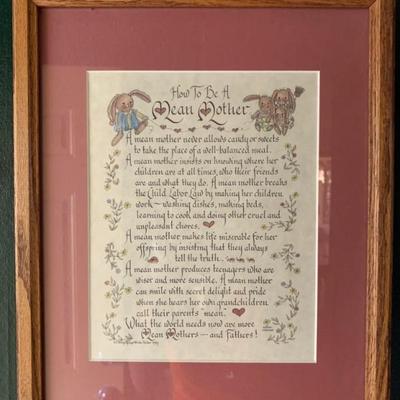 How To Be A
Mean Mother
A mean mother never allows candy or sweets
to take the place of a well-balanced meal.
A mean mother insists on knowing where her
children are at all times, who their friends
are and what they do. A mean mother breaks
the Child Labor Law by making her children
work — washing dishes, making beds,
learning to cook and doing other cruel and
unpleasant chores.
A mean mother makes life miserable for her
offspring by insisting that they always
tell the truth.
A mean mother produces teenagers who are
wiser and more sensible. A mean mother
can smile with secret delight and pride
when she hears her own grandchildren
call their parents "mean."
What the world needs now are more
Mean Mothers — and Fathers!